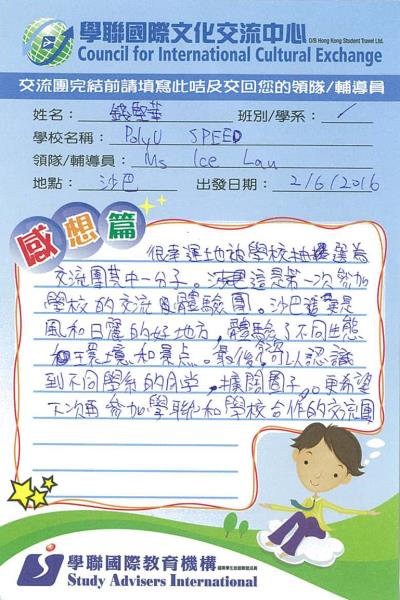 學聯國際文化交流中心 D/B Hong Kong Student Travel Ltd.
Council for International Cultural Exchange
交流團完結前請填寫此咭及交回您的領隊/輔導員
姓名： 錢堅華 班別/學系： /
學校名稱： PolyU SPEED
領隊/輔導員： Ms Ice Lau
地點： 沙巴 出發日期： 2/6/2016
感想篇
很幸運地被學校抽選為
交流團其中一分子。這是第一次參加
學校的交流及體驗團。沙巴這裏是
風和日麗的好地方，體驗了不同生態
和環境和景點。最後可以認識
到不同學系的同學，擴闊圈子。更希望
下次再參加學聯和學校合作的交流團
學聯國際教育機構
Study Advisers International